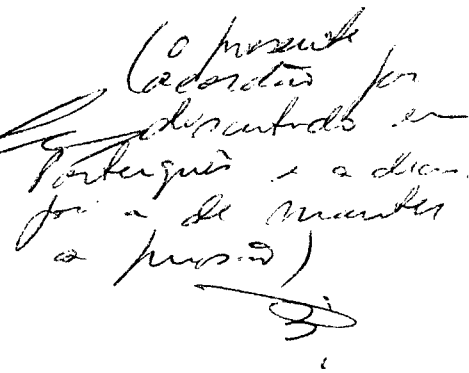 (o presente
acordão foi
discutido em
Português e a
foi a de manter
a prisão)